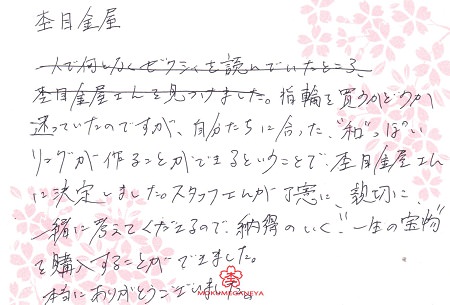 杢目金屋
一人で何となくゼクシィを読んでいたところ、
杢目金屋さんを見つけました。指輪を買うかどうか
迷っていたのですが、自分たちに合った、"和"っぽい
リングが作ることができるということで、杢目金屋さん
に決定しました。スタッフさんが丁寧に、親切に、
一緒に考えてくださるので、納得のいく"一生の宝物"
を購入することができました。
本当にありがとうございました。
MOKUMEGANEYA